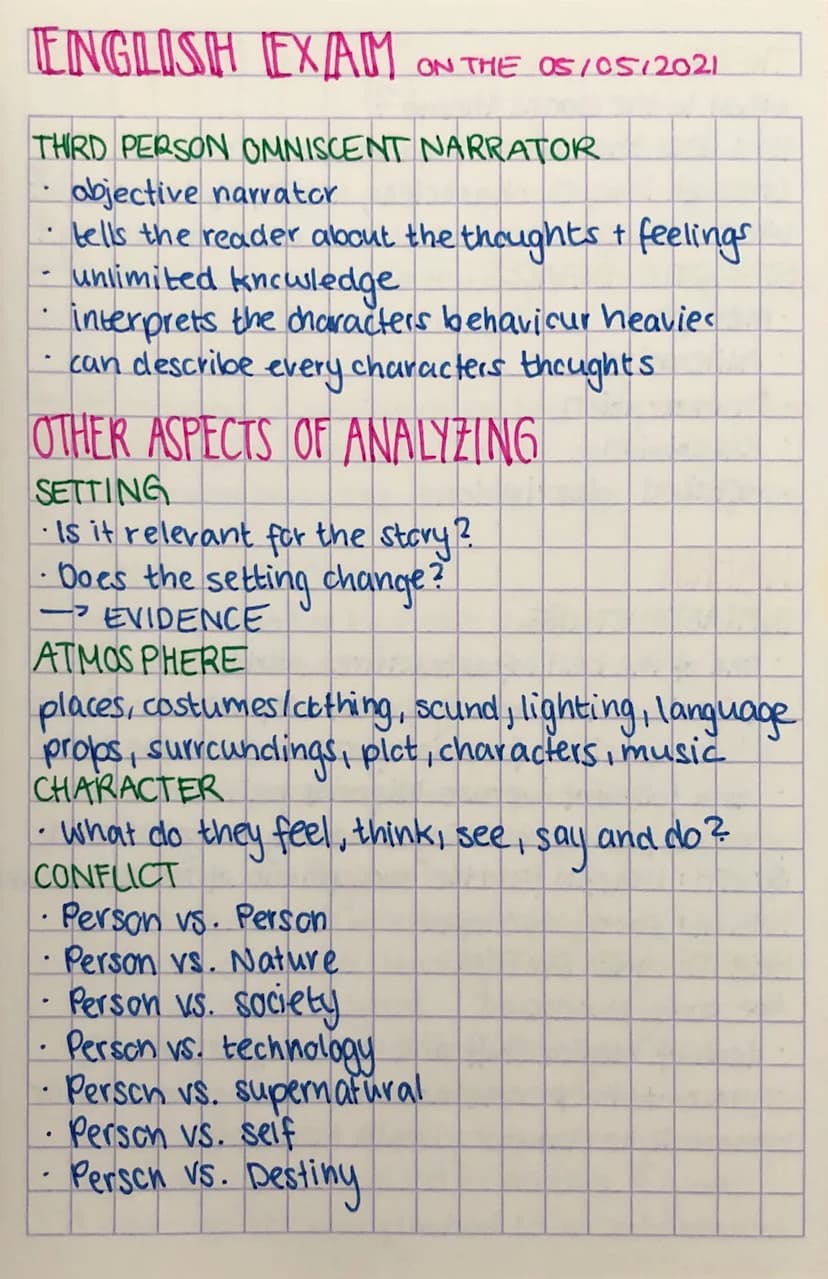 ENGLISH EXAM ON THE 05/05/2021
THIRD PERSON OMNISCENT NARRATOR
· objective narrator
· tells the reader about the thoughts + feelings
- unlimited knowledge
· interprets the characters behaviour
· can describe every characters thoughts
OTHER ASPECTS OF ANALYZING
SETTING
· Is it relevant for the story?
· Does the setting change?
→ EVIDENCE
ATMOSPHERE
places, costumes/clothing, sound, lighting, language
props, surroundings, plot, characters, music
CHARACTER
· What do they feel, think, see, say and do?
CONFLICT
· Person vs. Person
· Person vs. Nature
· Person vs. society
· Person vs. technology
· Person vs. supernatural
· Person vs. self
· Person vs. Destiny